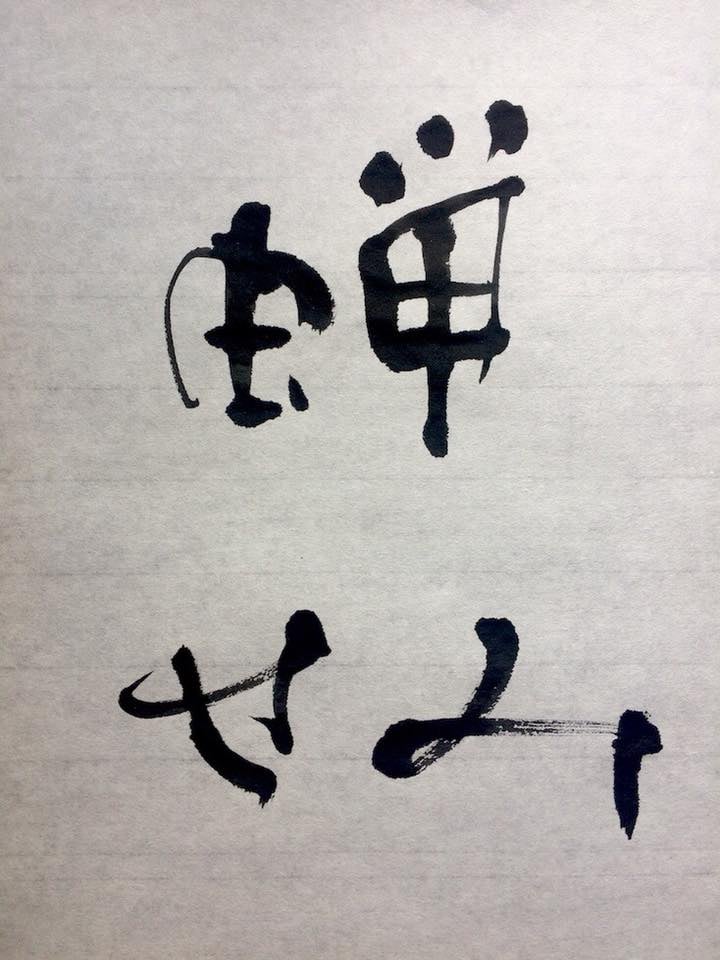 蝉
せみ